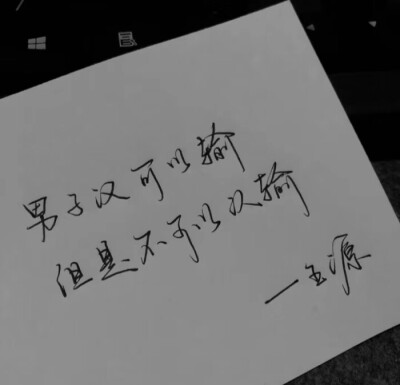 男子汉可以输
但是不可以认输
—王源